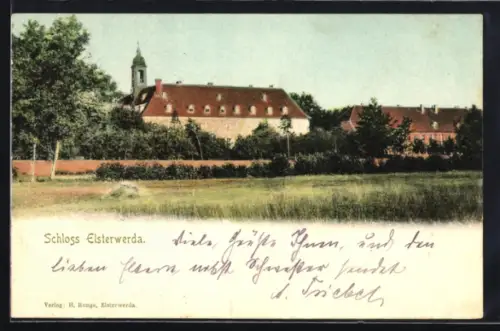 Schloss Elsterwerda.
Viele, Grüße Ihnen, und den
lieben Eltern nebst Schwester sendet
A. Triebel
Verlag: H. Bongs, Elsterwerda.